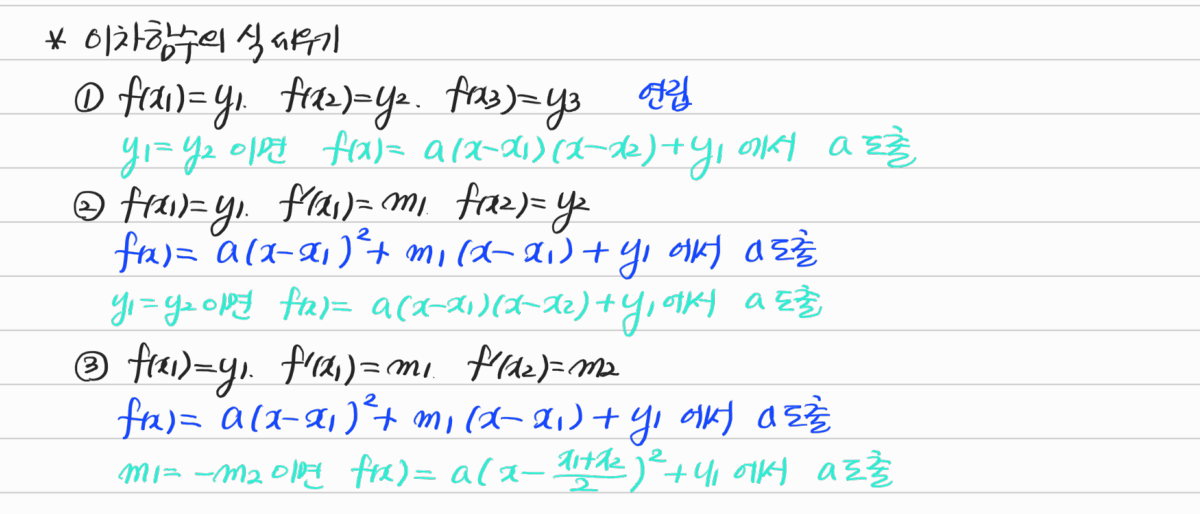 * 이차함수의 식 세우기
① f(x₁)=y₁. f(x₂)=y₂. f(x₃)=y₃ 연립
y₁=y₂ 이면 f(x)= a(x-x₁)(x-x₂)+y₁ 에서 a 도출
② f(x₁)=y₁. f'(x₁)=m₁. f(x₂)=y₂
f(x)= a(x-x₁)²+ m₁(x-x₁)+y₁ 에서 a 도출
y₁=y₂ 이면 f(x)= a(x-x₁)(x-x₂)+y₁ 에서 a 도출
③ f(x₁)=y₁. f'(x₁)=m₁. f'(x₂)=m₂
f(x)= a(x-x₁)²+ m₁(x-x₁)+y₁ 에서 a 도출
m₁=-m₂ 이면 f(x)= a(x-(x₁+x₂)/2)²+y₁ 에서 a 도출